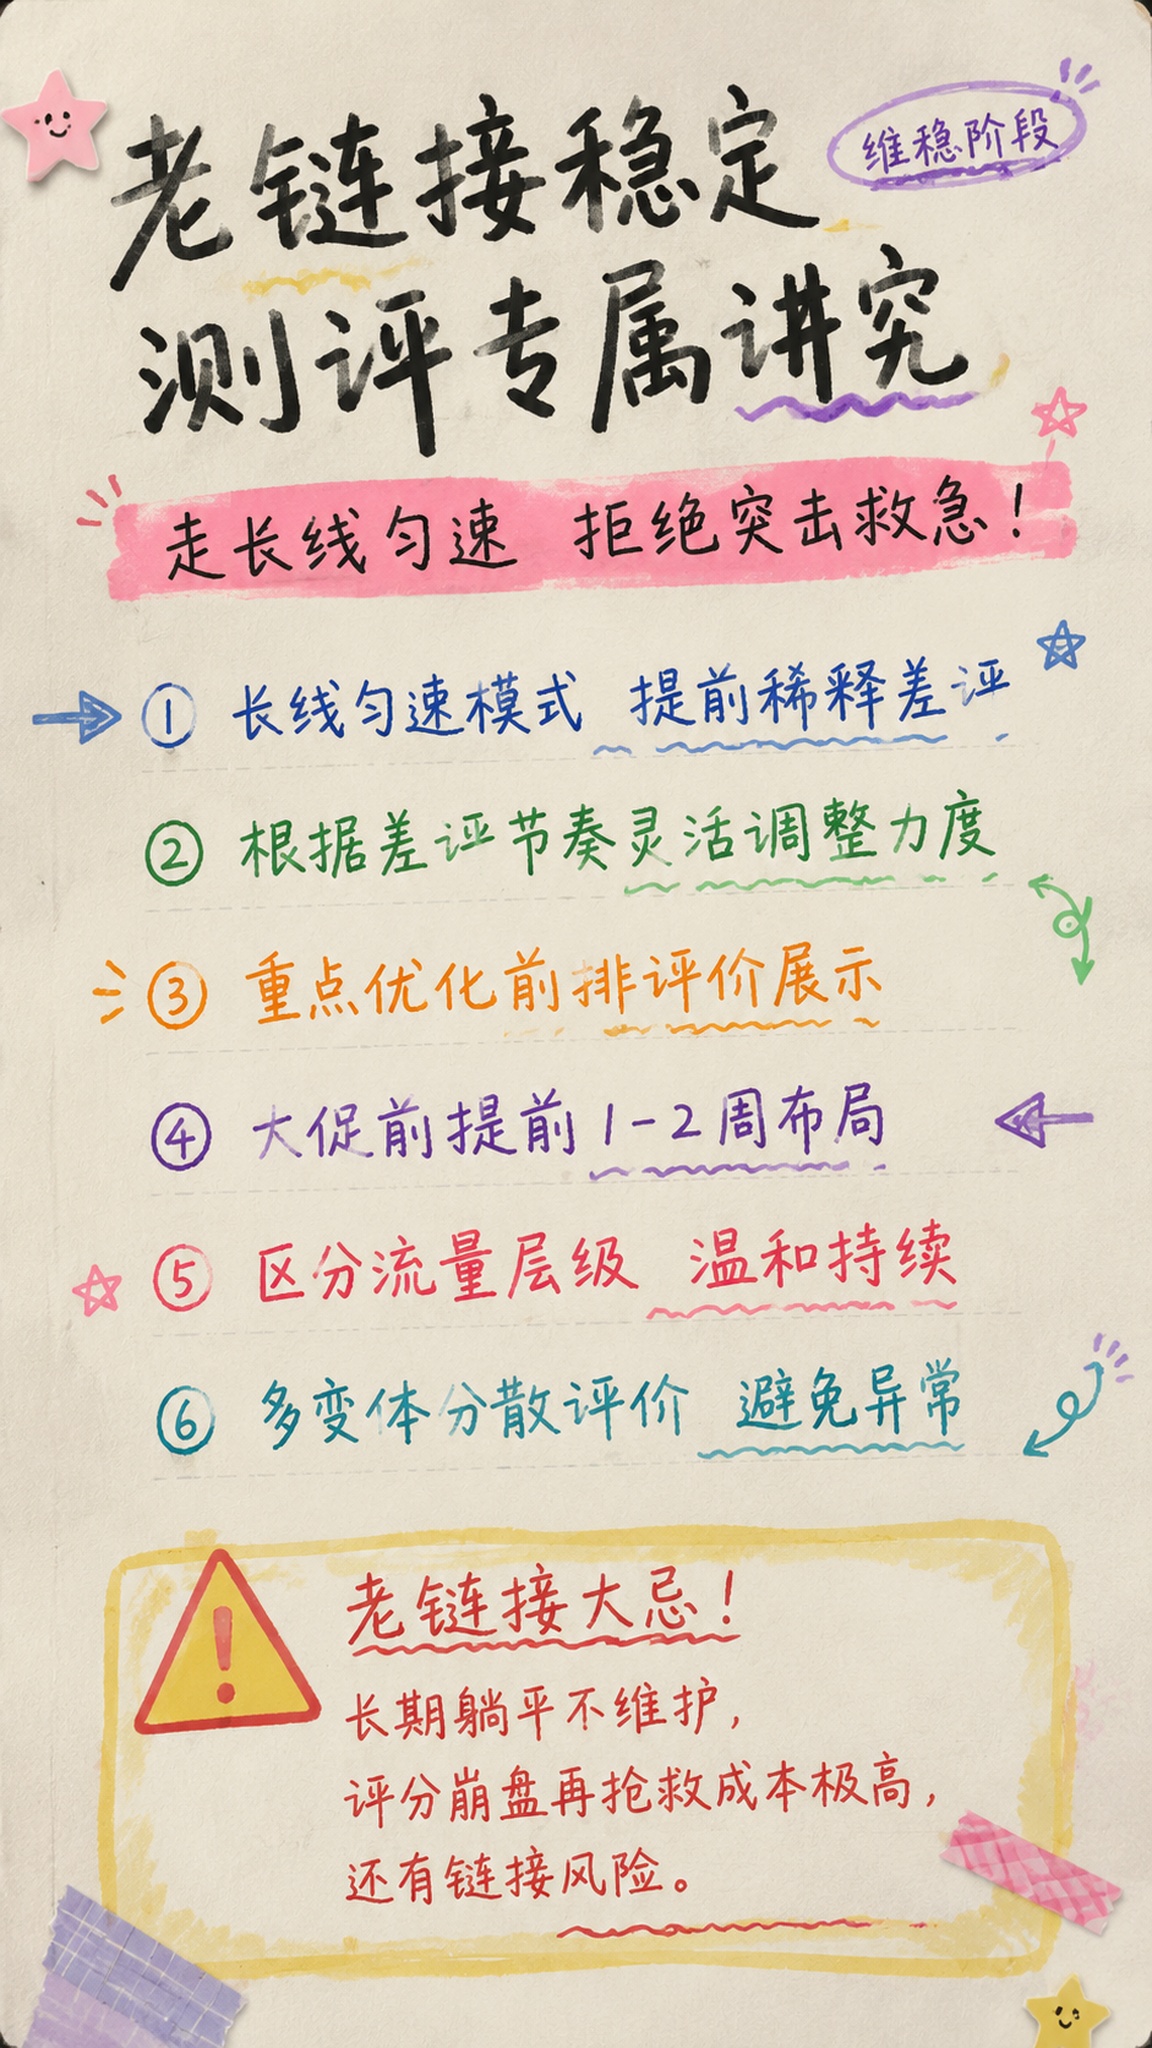 老链接稳定
维稳阶段
测评专属讲究
走长线匀速 拒绝突击救急！
① 长线匀速模式 提前稀释差评
② 根据差评节奏灵活调整力度
③ 重点优化前排评价展示
④ 大促前提前1-2周布局
⑤ 区分流量层级 温和持续
⑥ 多变体分散评价 避免异常
老链接大忌！
长期躺平不维护，
评分崩盘再抢救成本极高，
还有链接风险。